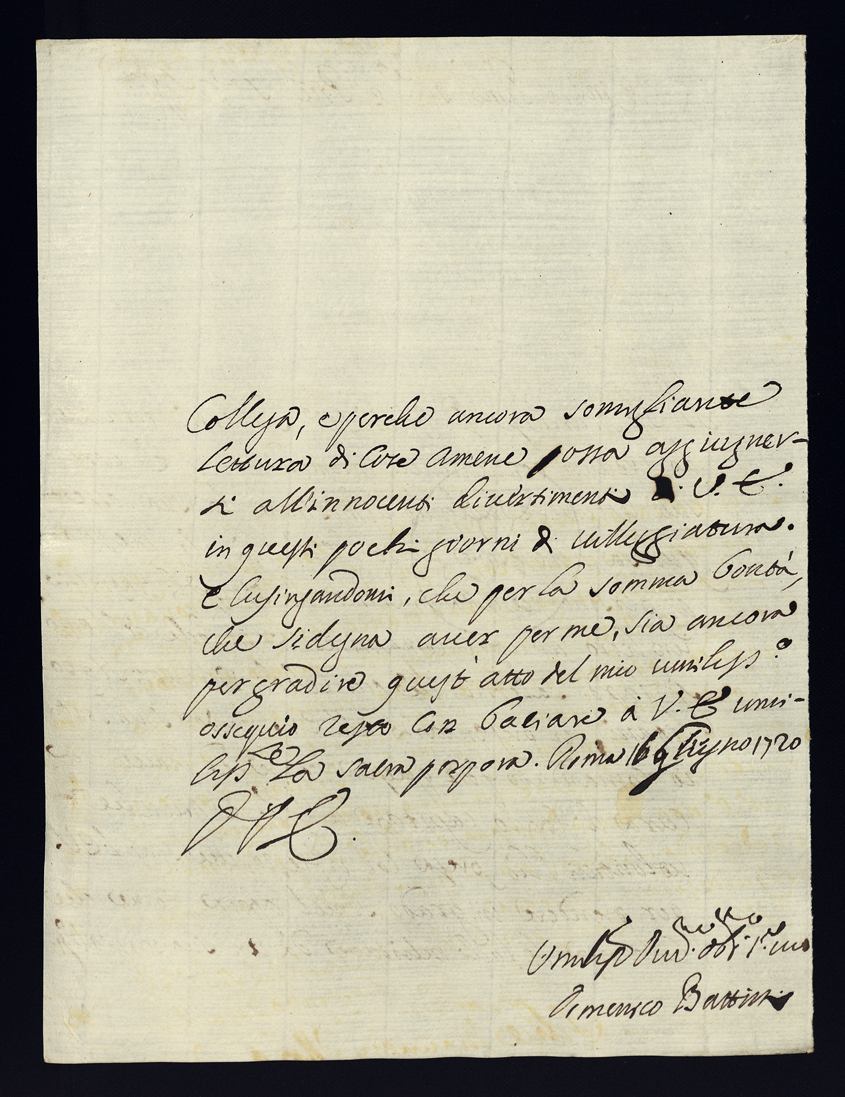 Collega, e perche ancora somigliante
lettura di Cose Amene possa aggiugner-
si all'innocenti divertimenti V. E.
in questi pochi giorni di villeggiatura.
E lusingandomi, che per la somma bontà,
che si degna aver per me, sia ancora
per gradire quest'atto del mio umiliss.o
ossequio resto con baciare à V. E umi-
liss.te La sacra porpora. Roma 16 Giugno 1720
D V E.
Umiliss
Domenico Battisti